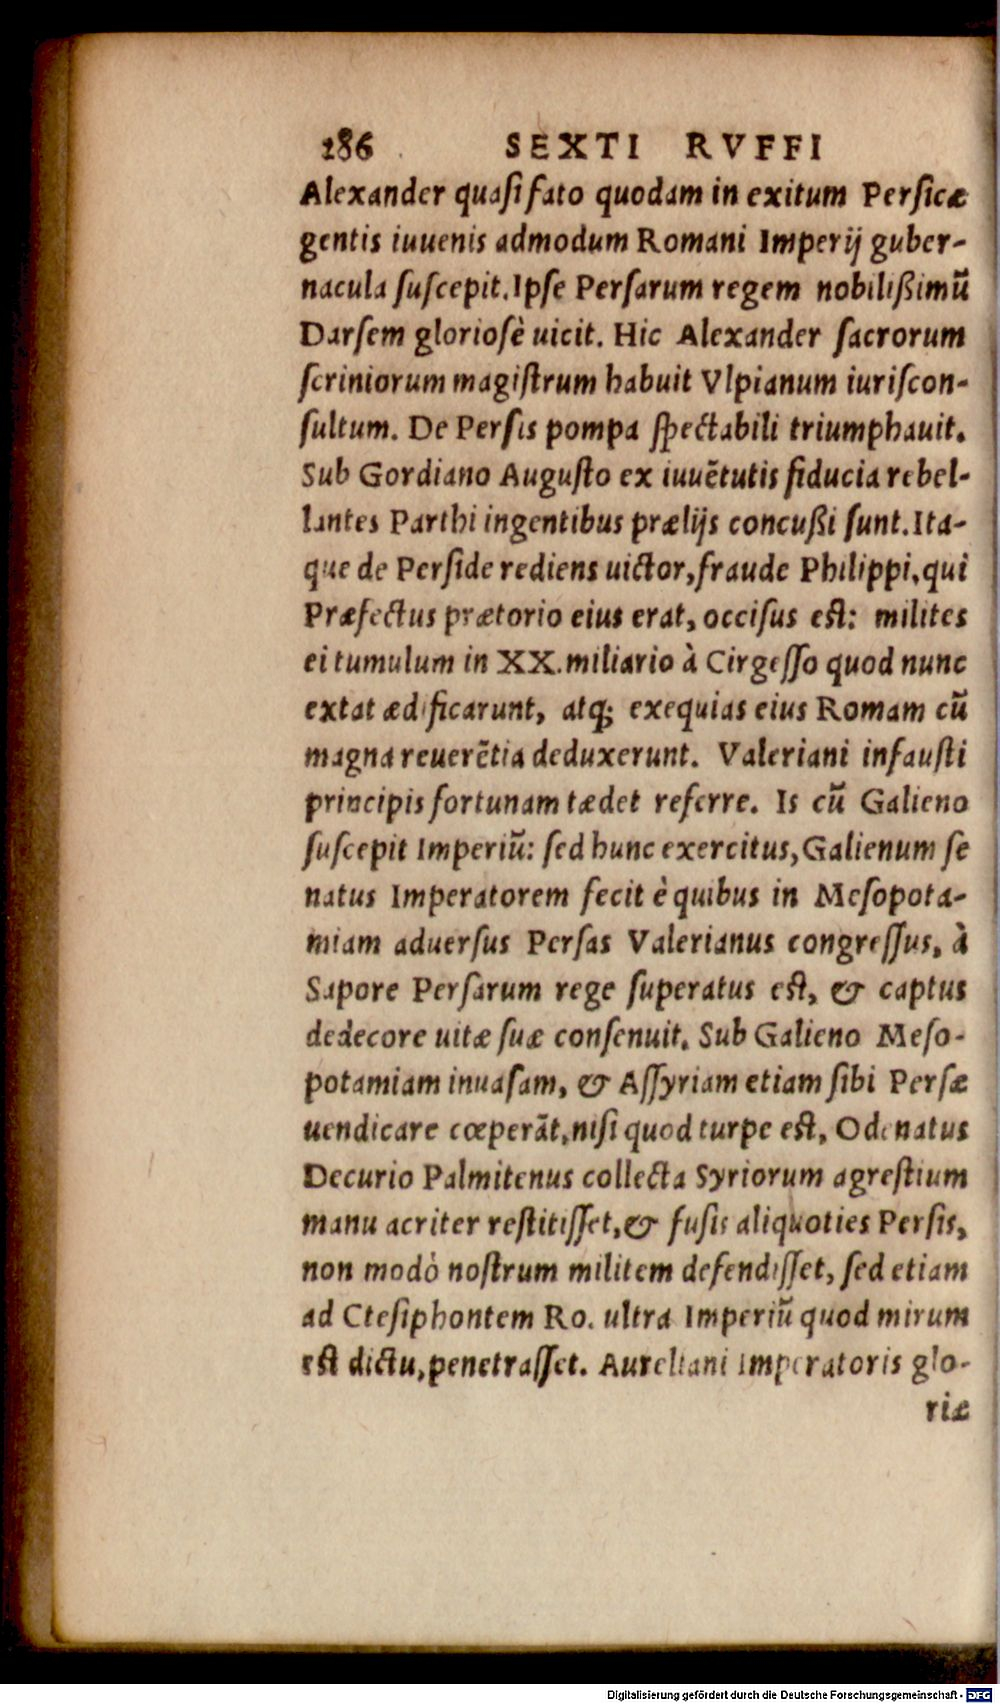 286 SEXTI RVFFI
Alexander quaſi fato quodam in exitum Perſicæ
gentis iuuenis admodum Romani Imperij guber-
nacula ſuſcepit. Ipſe Perſarum regem nobilißimũ
Darſem glorioſè uicit. Hic Alexander ſacrorum
ſcriniorum magiſtrum habuit Vlpianum iuriſcon-
ſultum. De Perſis pompa ſpectabili triumphauit.
Sub Gordiano Auguſto ex iuuẽtutis fiducia rebel-
lantes Parthi ingentibus prælijs concußi ſunt. Ita-
que de Perſide rediens uictor, fraude Philippi, qui
Præfectus prætorio eius erat, occiſus eſt: milites
ei tumulum in XX. miliario à Cirgeſſo quod nunc
extat ædificarunt, atq; exequias eius Romam cũ
magna reuerẽtia deduxerunt. Valeriani infauſti
principis fortunam tædet referre. Is cũ Galieno
ſuſcepit Imperiũ: ſed hunc exercitus, Galienum ſe
natus Imperatorem fecit è quibus in Meſopota-
miam aduerſus Perſas Valerianus congreſſus, à
Sapore Perſarum rege ſuperatus eſt, & captus
dedecore uitæ ſuæ conſenuit. Sub Galieno Meſo-
potamiam inuaſam, & Aſſyriam etiam ſibi Perſæ
uendicare cœperãt, niſi quod turpe eſt, Odenatus
Decurio Palmitenus collecta Syriorum agreſtium
manu acriter reſtitiſſet, & fuſis aliquoties Perſis,
non modò noſtrum militem defendiſſet, ſed etiam
ad Cteſiphontem Ro. ultra Imperiũ quod mirum
eſt dictu, penetraſſet. Aureliani Imperatoris glo-
riæ
Digitalisierung gefördert durch die Deutsche Forschungsgemeinschaft - DFG